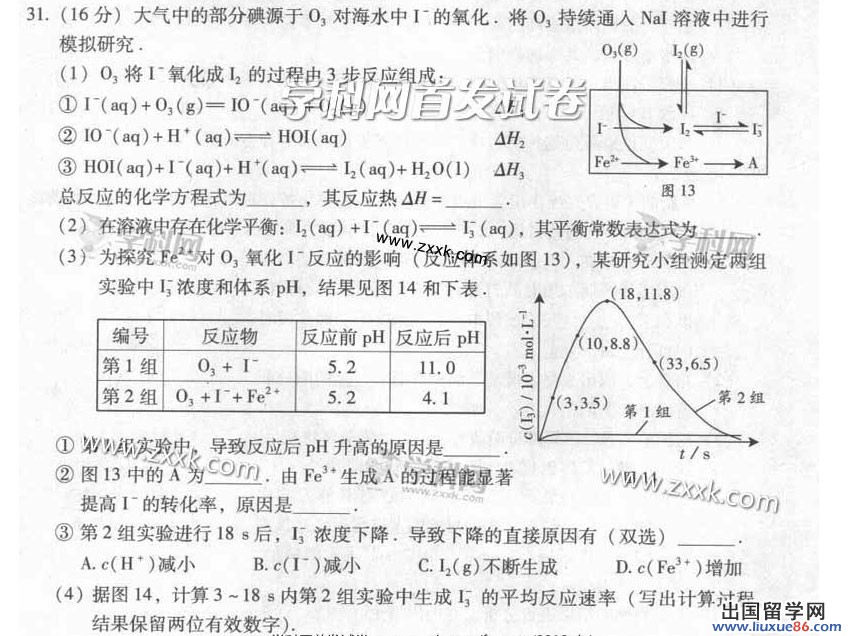 31. (16 分) 大气中的部分碘源于 O₃ 对海水中 I⁻ 的氧化. 将 O₃ 持续通人 NaI 溶液中进行
模拟研究.
(1) O₃ 将 I⁻ 氧化成 I₂ 的过程由 3 步反应组成:
① I⁻(aq)+O₃(g)═ IO⁻(aq)+ ΔH₁
② IO⁻(aq)+H⁺(aq)⇌ HOI(aq) ΔH₂
③ HOI(aq)+I⁻(aq)+H⁺(aq)⇌ I₂(aq)+H₂O(l) ΔH₃
总反应的化学方程式为______ 其反应热 ΔH =______
O₃(g) I₂(g)
I⁻ I₂ I⁻ I₃⁻
Fe²⁺ Fe³⁺ A
图 13
(2) 在溶液中存在化学平衡: I₂(aq) +I⁻(aq)⇌ I₃⁻(aq), 其平衡常数表达式为______.
(3) 为探究 Fe²⁺ 对 O₃ 氧化 I⁻ 反应的影响 (反应体系如图 13), 某研究小组测定两组
实验中 I₃⁻ 浓度和体系 pH, 结果见图 14 和下表.
编号 反应物 反应前 pH 反应后 pH
第 1 组 O₃ + I⁻ 5.2 11.0
第 2 组 O₃ +I⁻+Fe²⁺ 5.2 4.1
c(I₃⁻) / 10⁻³ mol·L⁻¹
(18,11.8)
(10,8.8)
(33,6.5)
(3,3.5)
第 1 组
第 2 组
t / s
① 组实验中, 导致反应后 pH 升高的原因是______.
② 图 13 中的 A 为______. 由 Fe³⁺ 生成 A 的过程能显著
提高 I⁻ 的转化率, 原因是______.
③ 第 2 组实验进行 18 s 后, I₃⁻ 浓度下降. 导致下降的直接原因有 (双选) ______.
A. c(H⁺)减小 B. c(I⁻)减小 C. I₂(g)不断生成 D. c(Fe³⁺)增加
(4) 据图 14, 计算 3~18 s 内第 2 组实验中生成 I₃⁻ 的平均反应速率 (写出计算过程,
结果保留两位有效数字).
学科网首发试卷
学科网
www.zxxk.com
学科网
www.zxxk.com
学科网
www.zxxk.com
www.zxxk.com
出国留学网
www.liuxue86.com